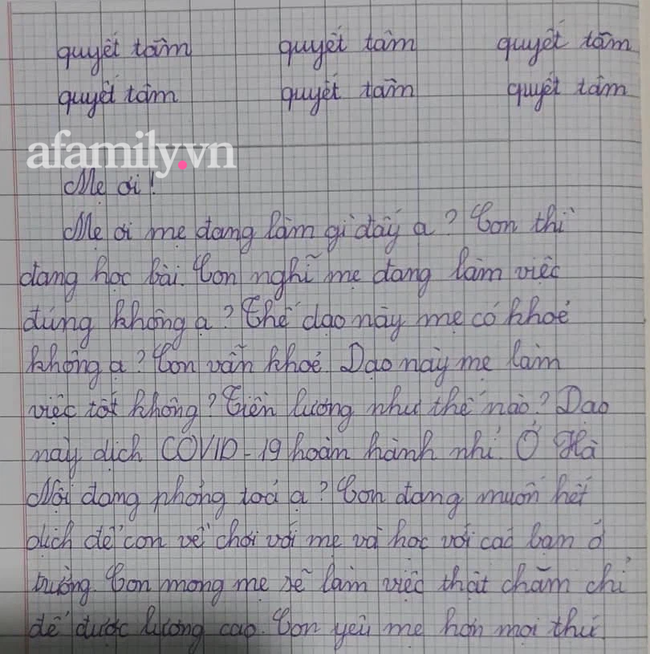 quyết tâm quyết tâm quyết tâm
quyết tâm quyết tâm quyết tâm
afamily.vn
Mẹ ơi!
Mẹ ơi mẹ đang làm gì đấy ạ? Con thì
đang học bài. Con nghĩ mẹ đang làm việc
đúng không ạ? Thế dạo này mẹ có khoẻ
không ạ? Con vẫn khoẻ. Dạo này mẹ làm
việc tốt không? Tiền lương như thế nào? Dạo
này dịch COVID-19 hoàn hành nhỉ. Ở Hà
Nội đang phỏng toả ạ? Con đang muốn hết
dịch để con về chơi với mẹ và học với các bạn ở
trường. Con mong mẹ sẽ làm việc thật chăm chỉ
để được lương cao. Con yêu mẹ hơn mọi thứ